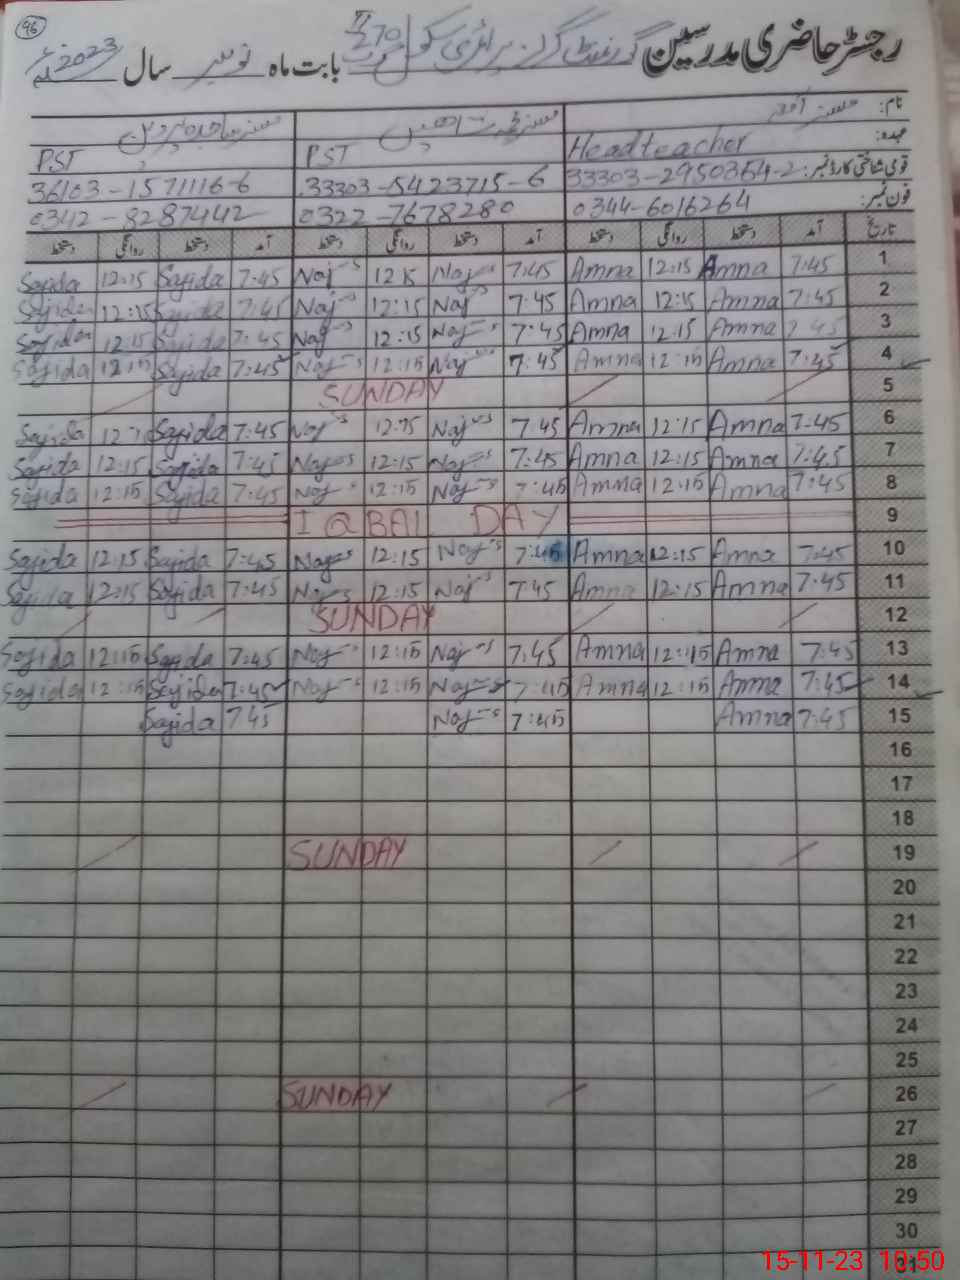 46
رجسٹر حاضری مدرسین گورنمنٹ گرلز پرائمری سکول 270 بابت ماہ نومبر سال 2023
نام: مسز آمنہ
عہدہ: Headteacher PST PST
قومی شناختی کارڈ نمبر: 33303-2950364-2 33303-5423715-6 36103-1571116-6
فون نمبر: 0344-6016264 0322-7678280 0342-8287442
تاریخ آمد دستخط روانگی دستخط آمد دستخط روانگی دستخط آمد دستخط روانگی دستخط
Sajida 12:15 Sajida 7:45 Naj 12 15 Naj 7:45 Amna 12:15 Amna 7:45 1
Sajida 12:15 Sajida 7:45 Naj 12:15 Naj 7:45 Amna 12:15 Amna 7:45 2
Sajida 12:15 Sajida 7:45 Naj 12:15 Naj 7:45 Amna 12:15 Amna 7:45 3
Sajida 12:15 Sajida 7:45 Naj 12:15 Naj 7:45 Amna 12:15 Amna 7:45 4
SUNDAY 5
Sajida Sajida 7:45 Naj Naj 7:45 Amna 12:15 Amna 7:45 6
Sajida 12:15 Sajida 7:45 Naj 12:15 Naj 7:45 Amna 12:15 Amna 7:45 7
Sajida 12:15 Sajida 7:45 Naj 12:15 Naj 7:45 Amna 12:15 Amna 7:45 8
IQBAL DAY 9
Sajida 12:15 Sajida 7:45 Naj 12:15 Naj 7:45 Amna 12:15 Amna 7:45 10
Sajida 12:15 Sajida 7:45 Naj 12:15 Naj 7:45 Amna 12:15 Amna 7:45 11
SUNDAY 12
Sajida 12:15 Sajida 7:45 Naj 12:15 Naj 7:45 Amna 12:15 Amna 7:45 13
Sajida 12:15 Sajida 7:45 Naj 12:15 Naj 7:45 Amna 12:15 Amna 7:45 14
Sajida 7 45 Naj 7:45 Amna 7:45 15
16
17
18
SUNDAY 19
20
21
22
23
24
25
SUNDAY 26
27
28
29
30
31
15-11-23 10:50